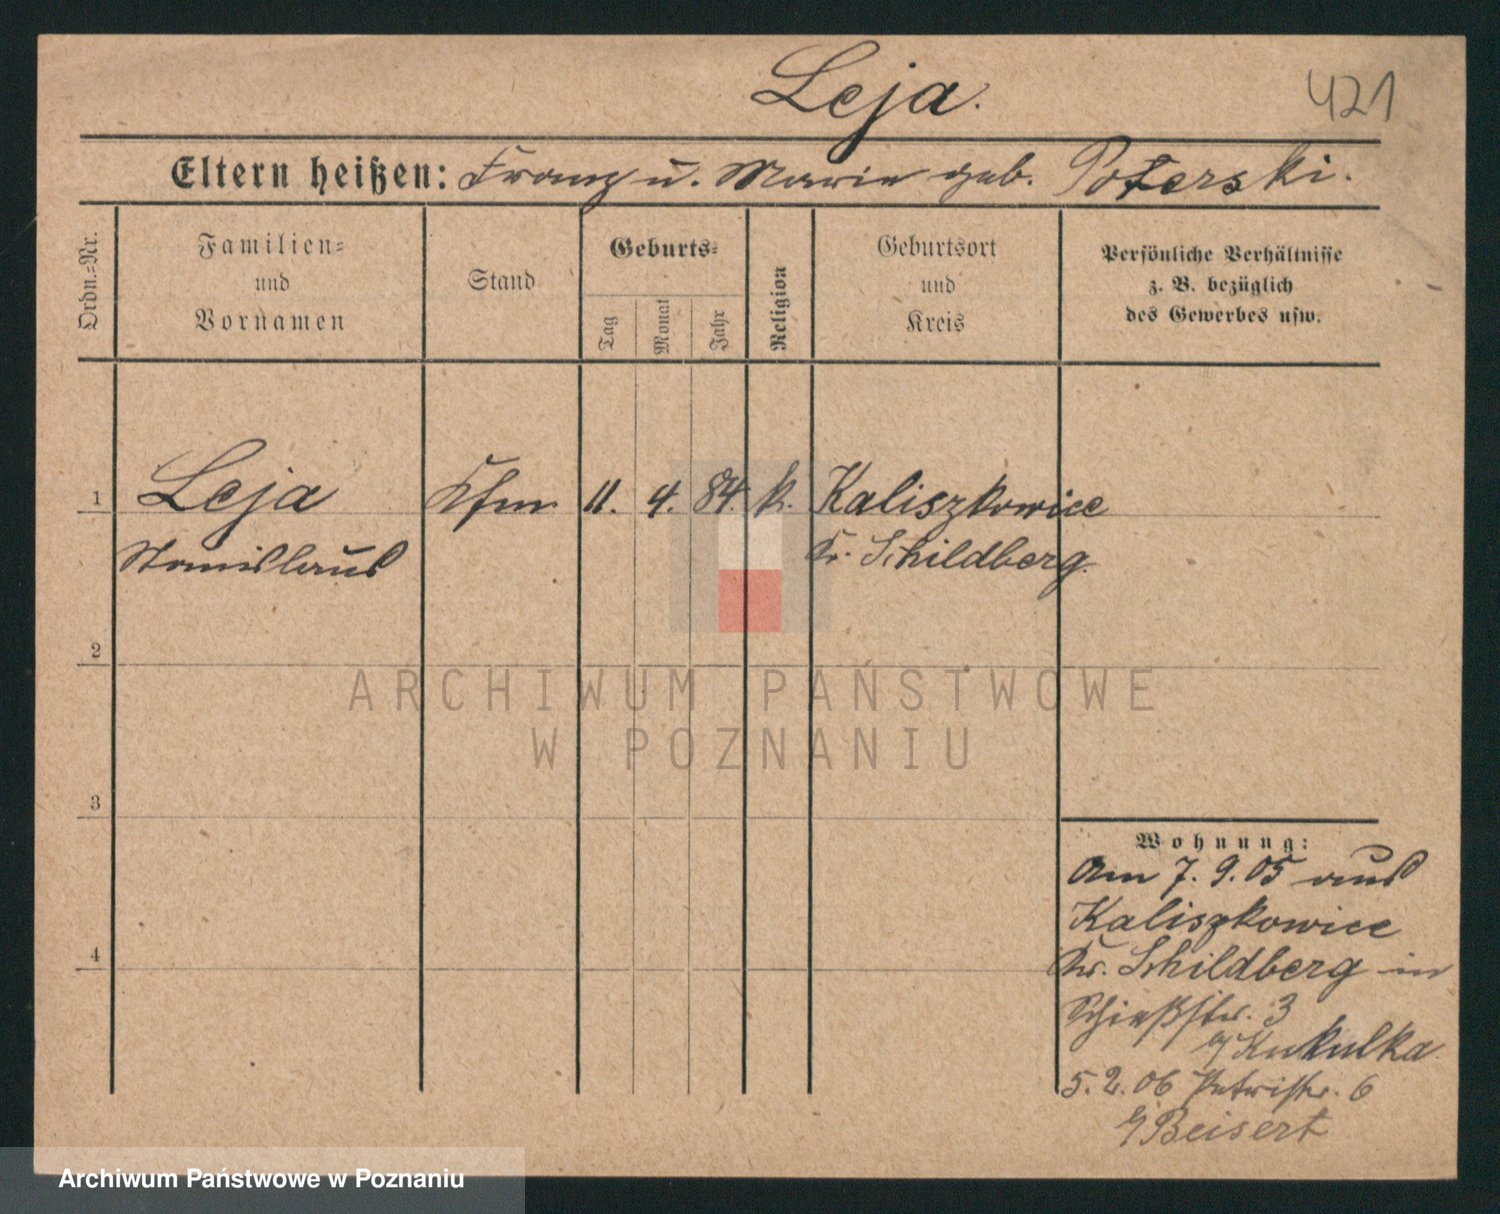 Leja.
421
Eltern heißen: Franz u. Marie geb. Poterski.
Ordn.-Nr.
Familien- und Vornamen
Stand
Geburts-
Tag
Monat
Jahr
Religion
Geburtsort und Kreis
Persönliche Verhältnisse
z. B. bezüglich
des Gewerbes usw.
1 Leja Kfm. 11. 4. 84. k. Kaliszkowice
Stanislaus Kr. Schildberg.
2
ARCHIWUM PAŃSTWOWE
W POZNANIU
3
Wohnung:
Am 7. 9. 05 aus
Kaliszkowice
4
Kr. Schildberg in
Schießstr. 3
b/ Kukulka.
5. 2. 06 Petristr. 6
b/ Beisert
Archiwum Państwowe w Poznaniu